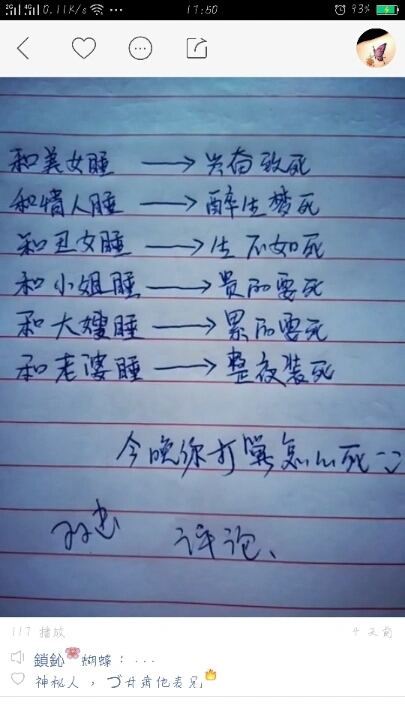 0.11K/s 11:50 93%
和美女睡 → 兴奋致死
和情人睡 → 醉生梦死
和丑女睡 → 生不如死
和小姐睡 → 贵的要死
和大嫂睡 → 累的要死
和老婆睡 → 整夜装死
今晚你打算怎么死
双击 评论、
117 播放 4 天前
鎖鈊🌸蝴蝶：...
神秘人，